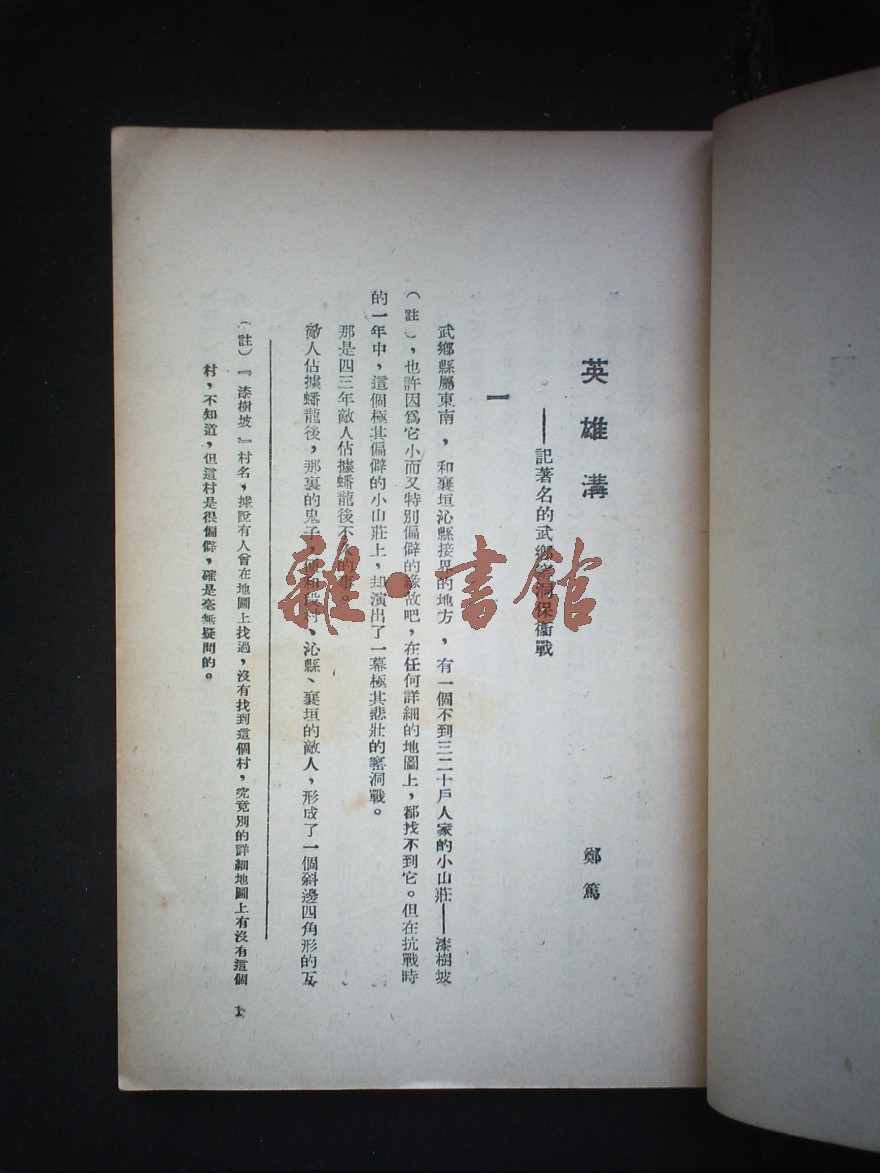 英雄溝
——記著名的武鄉窰洞保衞戰
鄭篤
一
武鄉縣屬東南，和襄垣沁縣接界的地方，有一個不到三二十戶人家的小山莊——漆樹坡
（註），也許因爲它小而又特別偏僻的緣故吧，在任何詳細的地圖上，都找不到它。但在抗戰時
的一年中，這個極其偏僻的小山莊上，却演出了一幕極其悲壯的窰洞戰。
那是四三年敵人佔據蟠龍後不久的事。
敵人佔據蟠龍後，那裏的鬼子，和段村、沁縣、襄垣的敵人，形成了一個斜邊四角形的互
（註）『漆樹坡』村名，據說有人曾在地圖上找過，沒有找到這個村，究竟別的詳細地圖上有沒有這個
村，不知道，但這村是很偏僻，確是毫無疑問的。
1
雜·書館